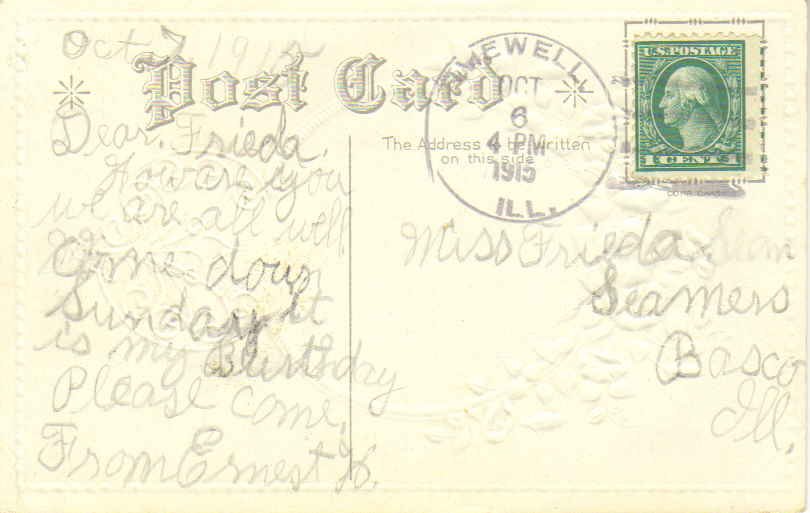 Oct 7 1915
Post Card
Dear Frieda,
How are you
we are all well
Come down
Sunday It
is my Birthday
Please come.
From Ernest H.
The Address to be written
on this side
EWELL,
OCT
6
4 PM
1915
ILL.
U.S. POSTAGE
1 CENT 1
Miss Frieda
Seamers
Basco
Ill.